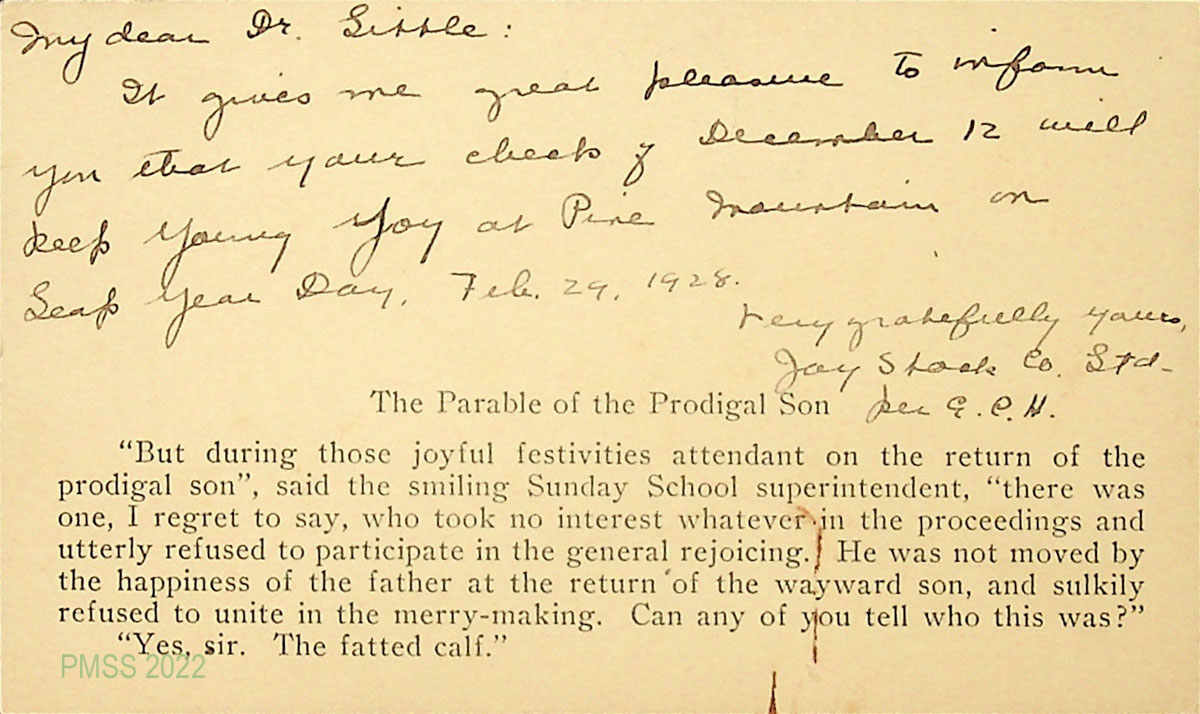 My dear Dr. Little:
It gives me great pleasure to inform
you that your check of December 12 will
keep Young Joy at Pine Mountain on
Leap Year Day, Feb. 29, 1928.
Very gratefully yours,
Joy Stock Co. Ltd.
per E. C. H.
The Parable of the Prodigal Son
“But during those joyful festivities attendant on the return of the
prodigal son”, said the smiling Sunday School superintendent, “there was
one, I regret to say, who took no interest whatever in the proceedings and
utterly refused to participate in the general rejoicing. He was not moved by
the happiness of the father at the return of the wayward son, and sulkily
refused to unite in the merry-making. Can any of you tell who this was?”
“Yes, sir. The fatted calf.”
PMSS 2022